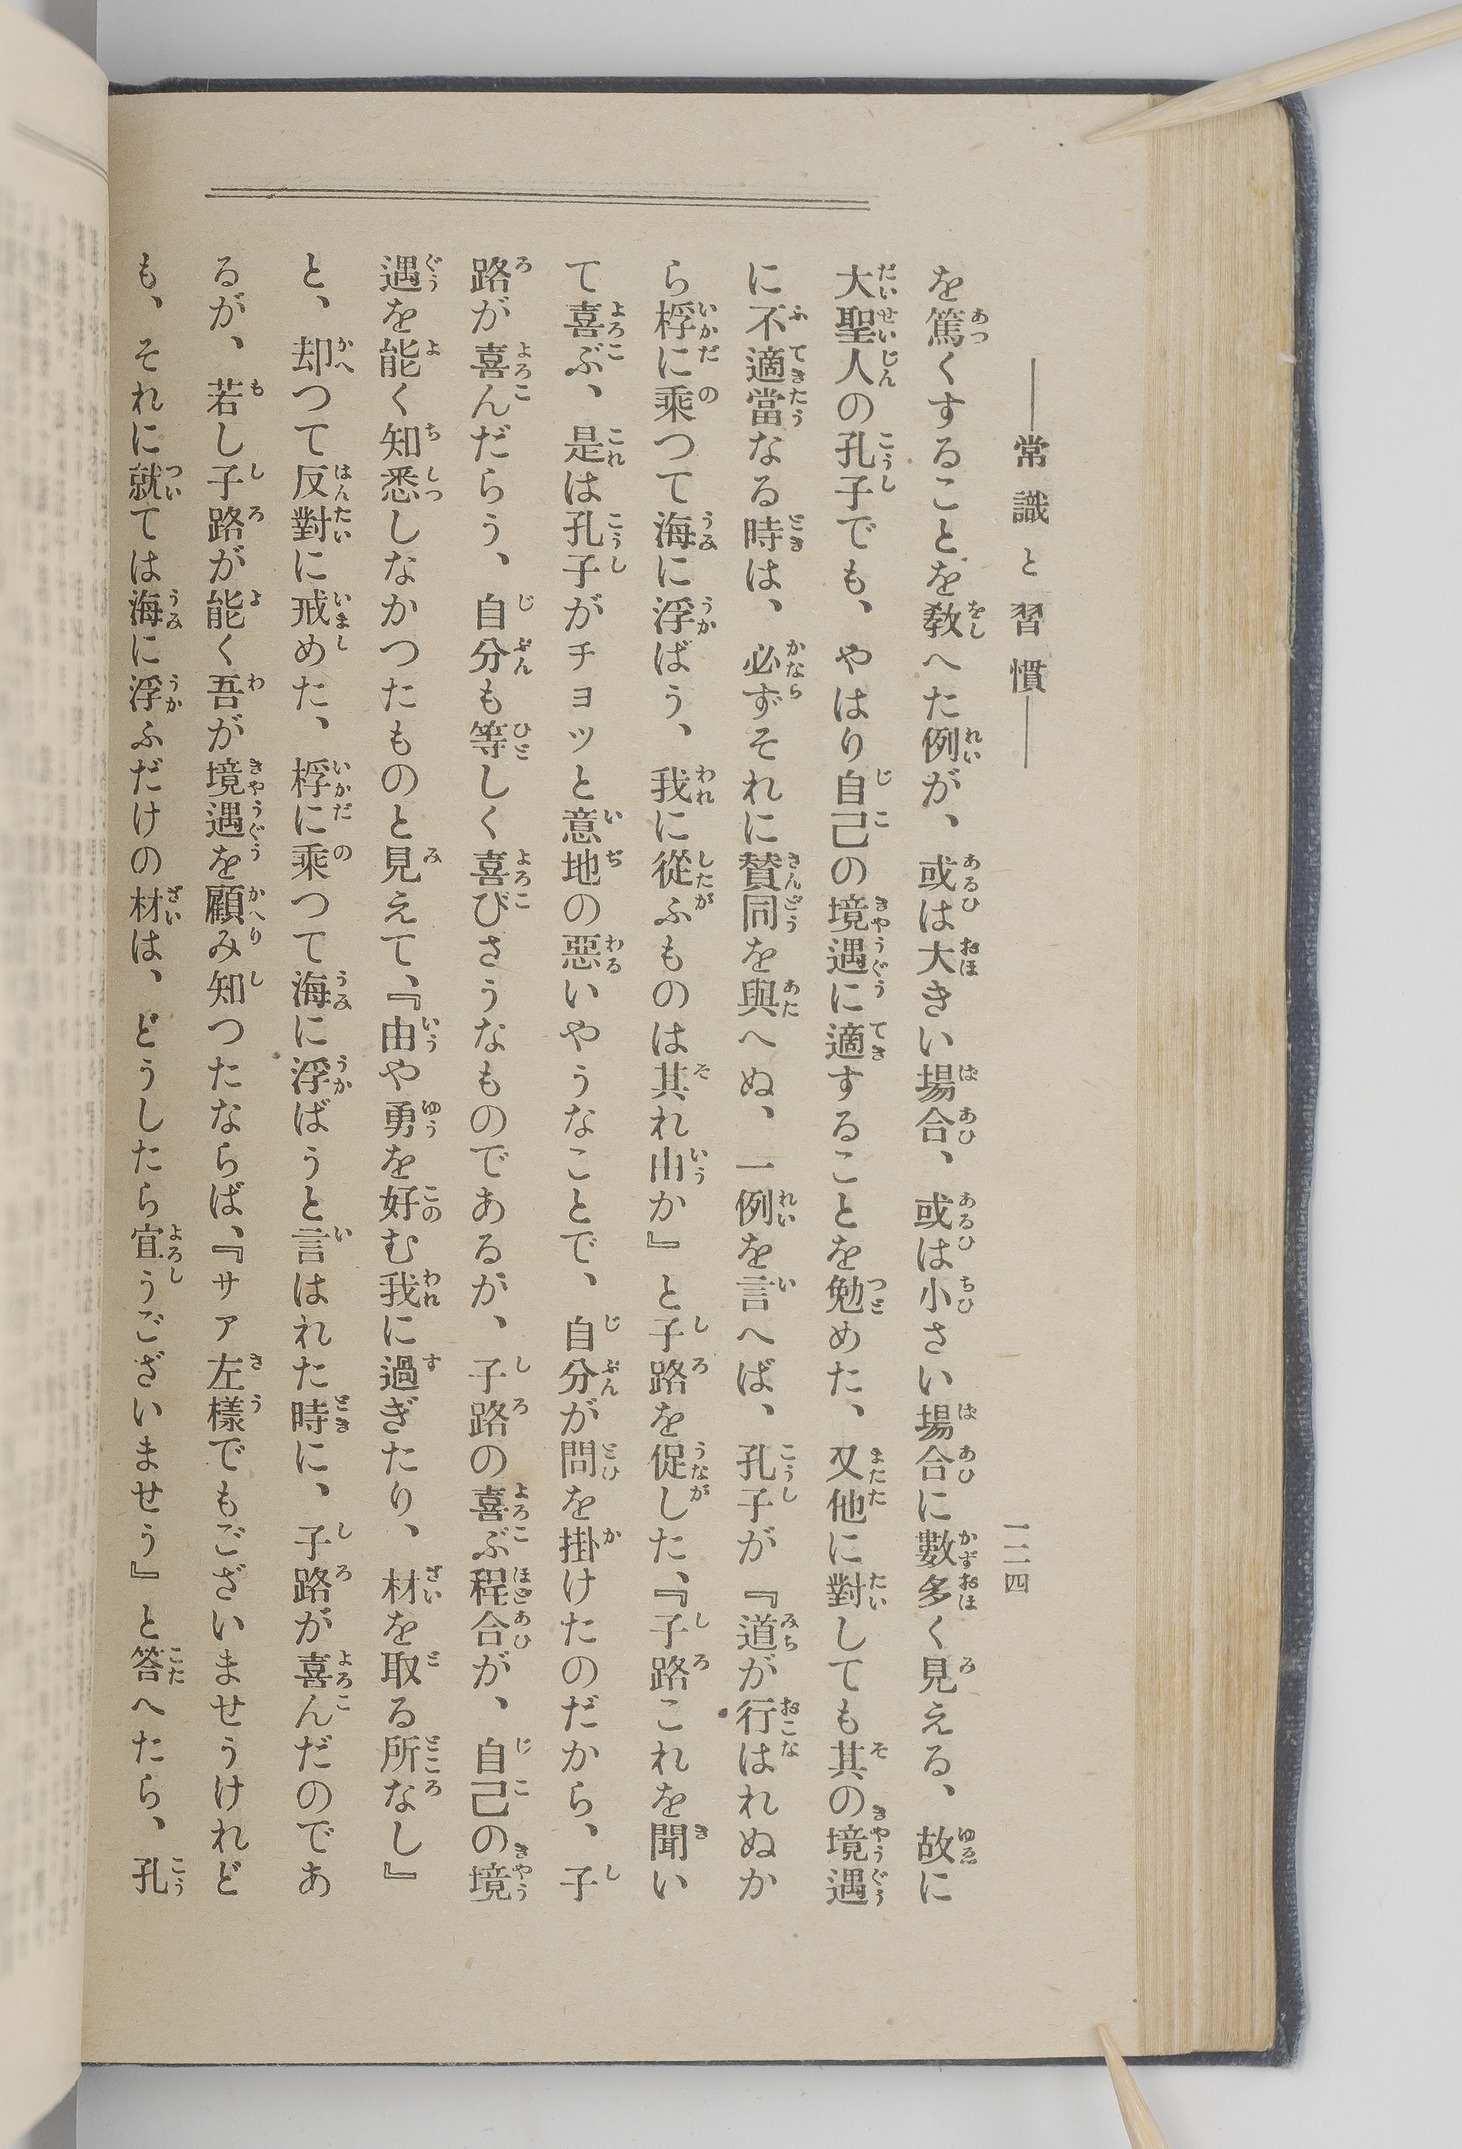 ――常識と習慣――
一二四
を篤くすることを敎へた例が、或は大きい場合、或は小さい場合に數多く見える、故に
大聖人の孔子でも、やはり自己の境遇に適することを勉めた、又他に對しても其の境遇
に不適當なる時は、必ずそれに贊同を與へぬ、一例を言へば、孔子が『道が行はれぬか
ら桴に乘つて海に浮ばう、我に從ふものは其れ由か』と子路を促した、『子路これを聞い
て喜ぶ、是は孔子がチョッと意地の惡いやうなことで、自分が問を掛けたのだから、子
路が喜んだらう、自分も等しく喜びさうなものであるが、子路の喜ぶ程合が、自己の境
遇を能く知悉しなかつたものと見えて、『由や勇を好む我に過ぎたり、材を取る所なし』
と、却つて反對に戒めた、桴に乘つて海に浮ばうと言はれた時に、子路が喜んだのであ
るが、若し子路が能く吾が境遇を顧み知つたならば、『サァ左樣でもございませうけれど
も、それに就ては海に浮ふだけの材は、どうしたら宜うございませう』と答へたら、孔